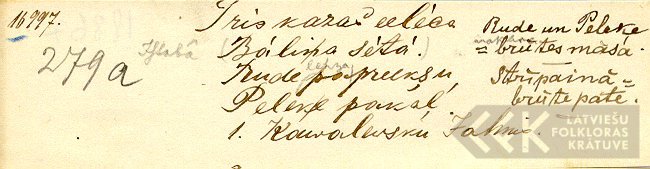 16997.
279a
Tris kazas ielēca
Bāliņa sētā.
Rude pa preekšu,
Peleke pakaļ,
1. Kawalewsku Jahnis.
Rude un Peleke
= brūtes māsa.
Strīpainā =
brūte pate.
LATVIEŠU
FOLKLORAS
KRĀTUVE